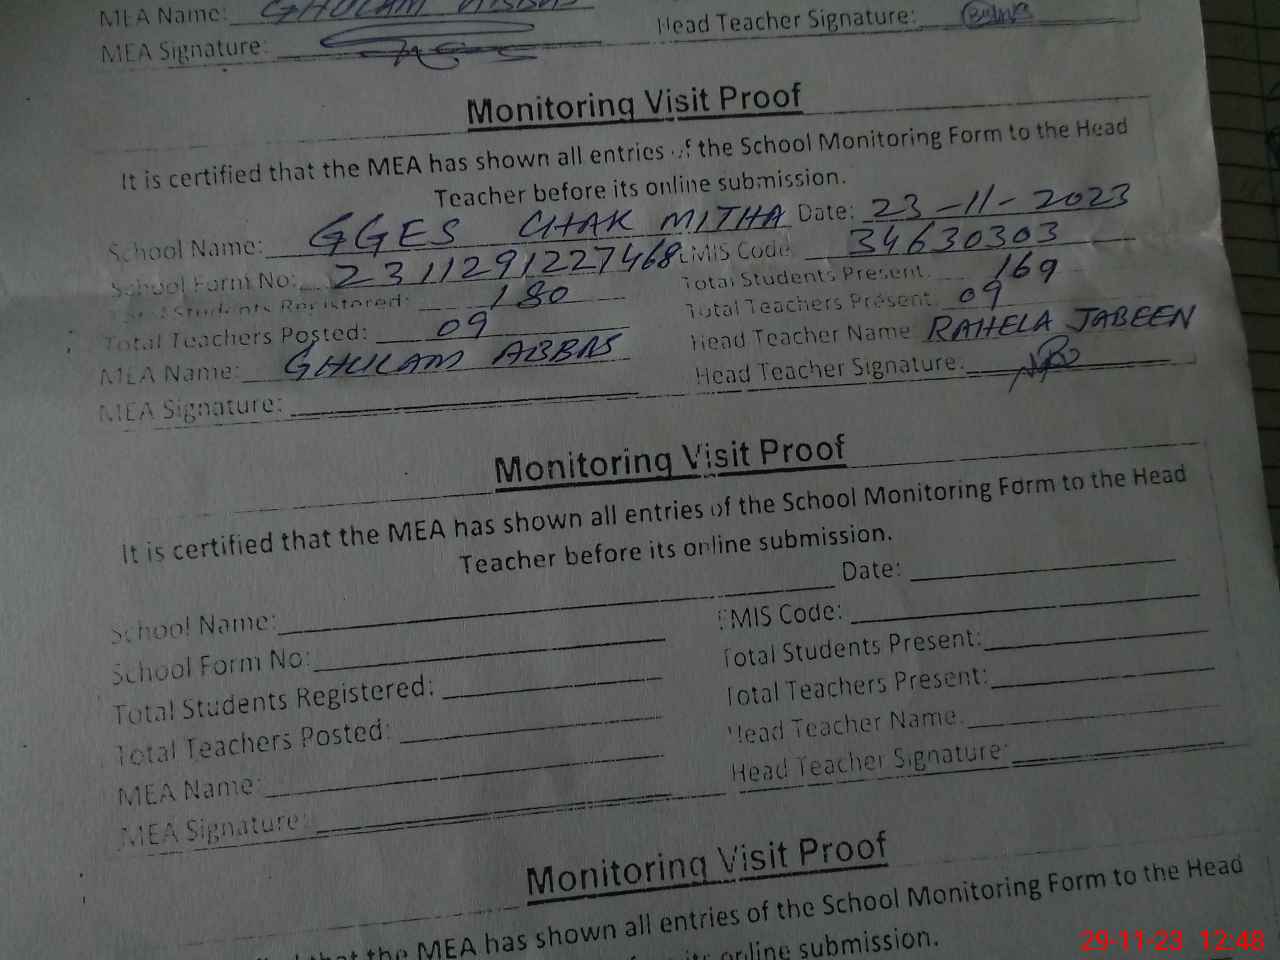 MEA Name: GHULAM ABBAS
Head Teacher Signature:
MEA Signature:
Monitoring Visit Proof
It is certified that the MEA has shown all entries of the School Monitoring Form to the Head
Teacher before its online submission.
School Name: GGES CHAK MITHA Date: 23-11-2023
School Form No: 2311291227468 EMIS Code: 34630303
Total Students Registered: 180 Total Students Present: 169
Total Teachers Posted: 09 Total Teachers Present: 09
MEA Name: GHULAM ABBAS Head Teacher Name: RAHELA JABEEN
MEA Signature: Head Teacher Signature:
Monitoring Visit Proof
It is certified that the MEA has shown all entries of the School Monitoring Form to the Head
Teacher before its online submission.
School Name: Date:
School Form No: EMIS Code:
Total Students Registered: Total Students Present:
Total Teachers Posted: Total Teachers Present:
MEA Name: Head Teacher Name:
MEA Signature: Head Teacher Signature:
Monitoring Visit Proof
that the MEA has shown all entries of the School Monitoring Form to the Head
its online submission.
29-11-23 12:48